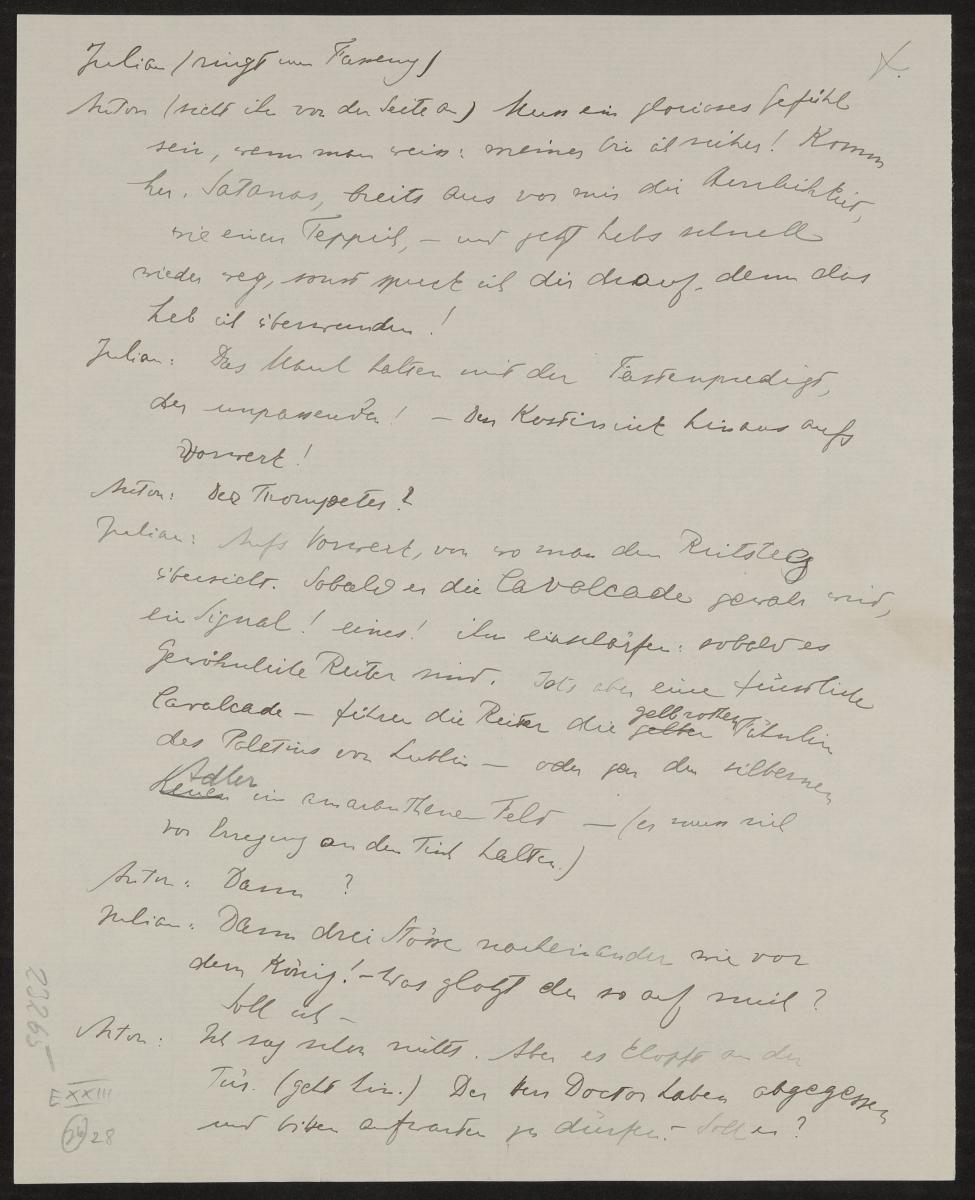 Julian (ringt um Fassung)
Anton (sieht ihn von der Seite an) Muss ein glorioses Gefühl
sein, wenn man weiss: meiner bin ich sicher! Komm
her, Satanas, breits aus vor mir die Herrlichkeit,
wie einen Teppich, – und jetzt hebs schnell
wieder weg, sonst spuck ich dir drauf, denn das
hab ich überwunden!
Julian: Das Maul halten mit der Fastenpredigt,
der unpassenden! – Den Kostinink hinaus aufs
Vorwerk!
Anton: Der Trompeter?
Julian: Aufs Vorwerk, von wo man den Reitsteg
übersieht. Sobald er die Cavalcade gewahr wird,
ein Signal! eines! ihm einschärfen: sobald es
gewöhnliche Reiter sind. Ists aber eine fürstliche
Cavalcade – führen die Reiter die gelber gelbrothen Fähnlein
des Palatins von Lublin – oder gar den silbernen
Adler im amaranthenen Feld – (er muss sich
vor Erregung an den Tisch halten.)
Anton: Dann?
Julian: Dann drei Stösse nacheinander wie vor
dem König! – Was glotzt du so auf mich?
Soll ich –
Anton: Ich sag schon nichts. Aber es klopft an der
Tür. (geht hin.) Der Herr Doctor haben abgegessen
und bitten aufwarten zu dürfen. – Soll er?
23265
E XXIII
28